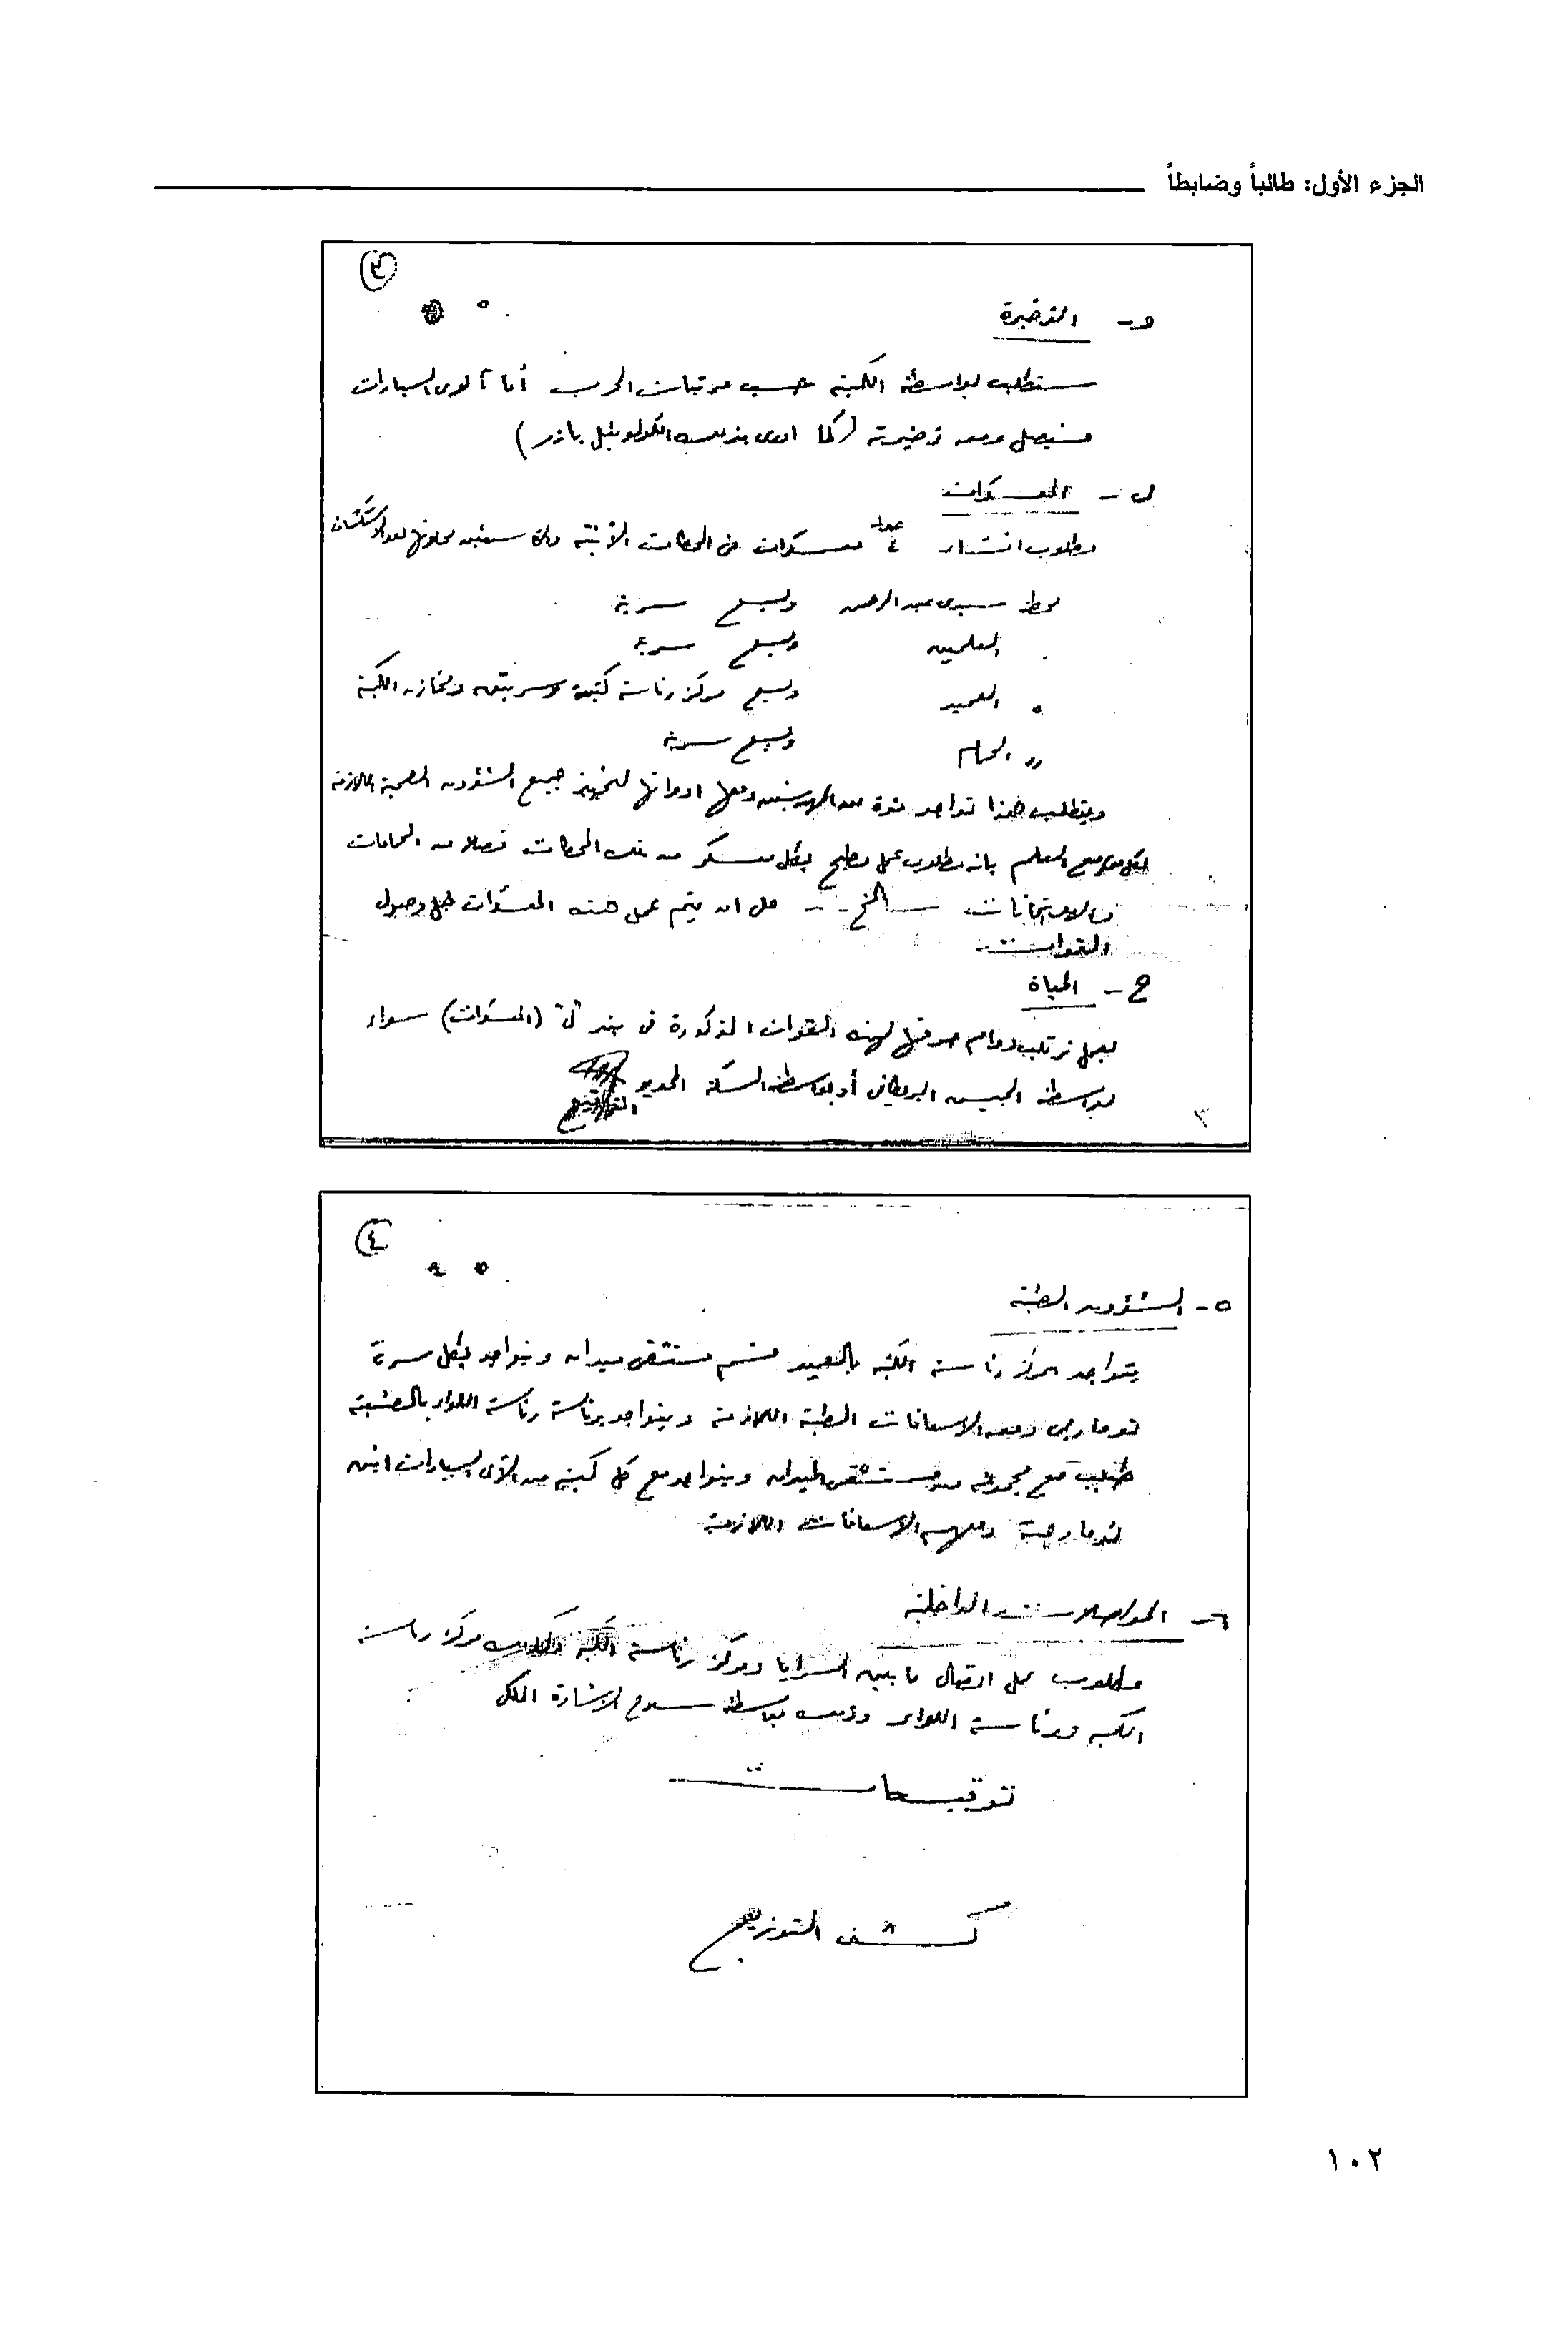 الجزء الأول: طالباً وضابطاً
٣
و- الذخيرة
ستطلب بواسطة الكتبة حسب مرتبات الحرب أما آلاى السيارات
فسيصل ومعه ذخيرته (كما أدى بذلك الكولونيل بازر)
ل- المعسكرات
مطلوب انشاء عدد ٤ معسكرات فى المحطات الآتية
محطة سيدى عبد الرحمن ويسع سرية
العلمين ويسع سرية
" العميد ويسع مركز رئاسة كتيبة وسريتين ومخازن الكتيبة
" الحمام ويسع سرية
ويتطلب هذا تواجد قوة من المهندسين ومعها ادواتها لتجهيز جميع الشؤون الصحية اللازمة
لكل موقع مع العلم بانه مطلوب عمل مطبخ بكل معسكر من تلك المحطات فضلا عن الحمامات
الخ .. على ان يتم عمل هذه المعسكرات قبل وصول
القوات
ح- المياة
يعمل ترتيب صرفها لهذه القوات المذكورة فى بند "ل" (المعسكرات) سواء
بواسطة الجيش البريطانى أو بواسطة السكة الحديد
٣
٤
٥- الشؤون الطبية
يتواجد بمركز رئاسة الكتيبة بالعميد قسم مستشفى ميدان ويتواجد بكل سرية
تومارجى ومعه الاسعافات الطبية اللازمة ويتواجد برئاسة رئاسة اللواء بالضبعة
طبيب مع مجموعة من مستشفى الميدان ويتواجد مع كل كتيبة من آلاى السيارات اثنين
تومارجية ومعهم الاسعافات اللازمة
٦- المواصلات الداخلية
مطلوب عمل اتصال ما بين السرايا ومركز رئاسة الكتيبة وكذلك مركز رئاسة
الكتيبة ورئاسة اللواء وذلك بواسطة سلاح الاشارة الملكى
توقيعات
كشف التوزيع
١٠٢